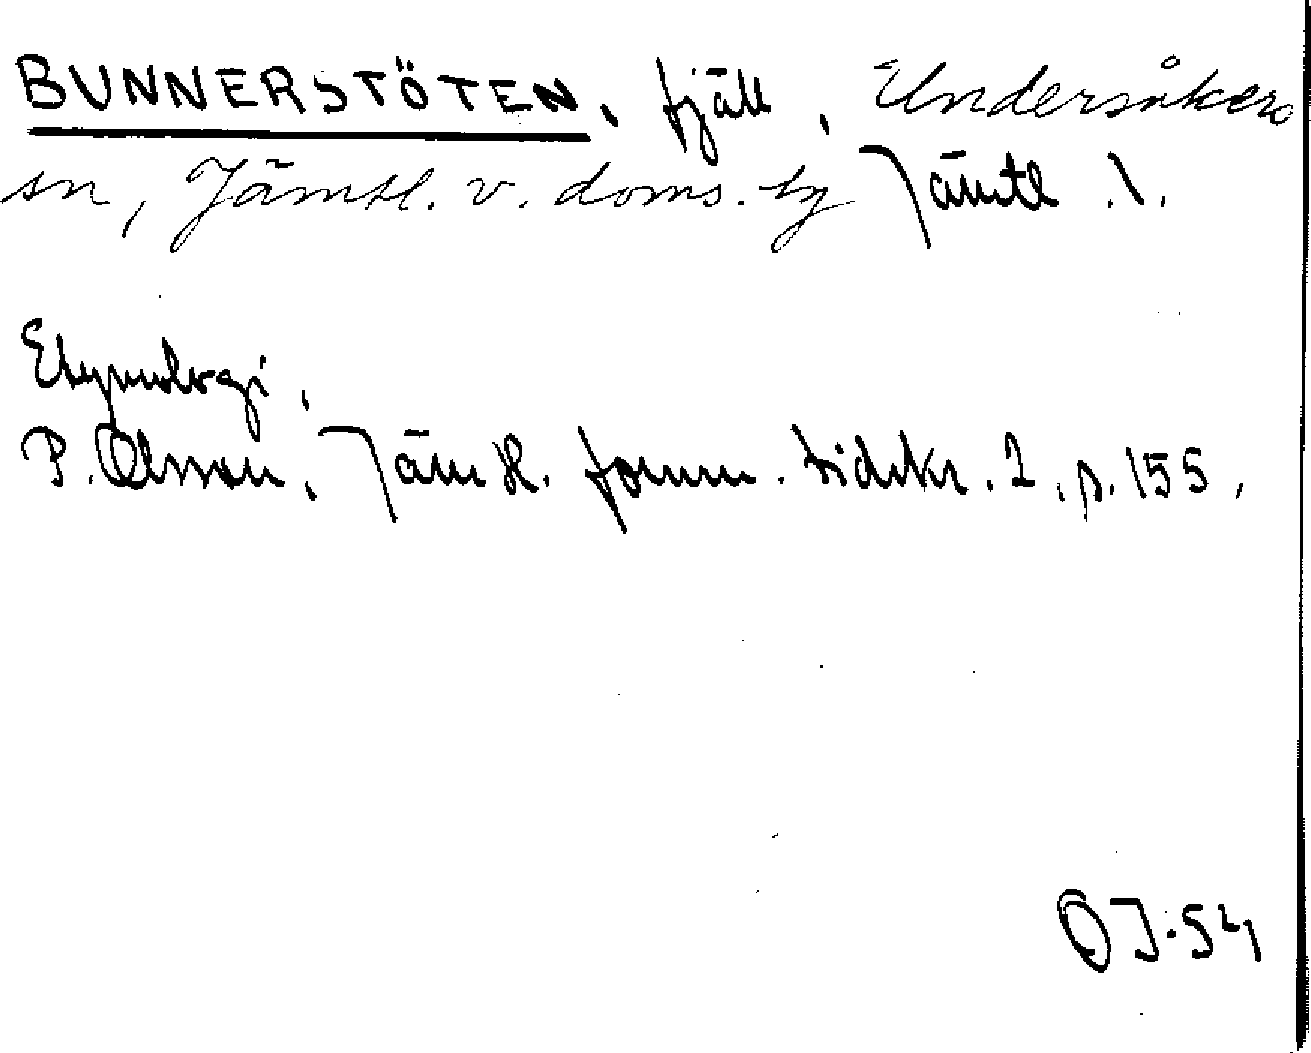 BUNNERSTÖTEN, fjäll, Undersåkers
sn, Jämtl. v. doms. Jämtl. l.
Etymologi,
P. Olsson, Jämtl. fornm. tidskr. 2, p. 155,
OJ.54